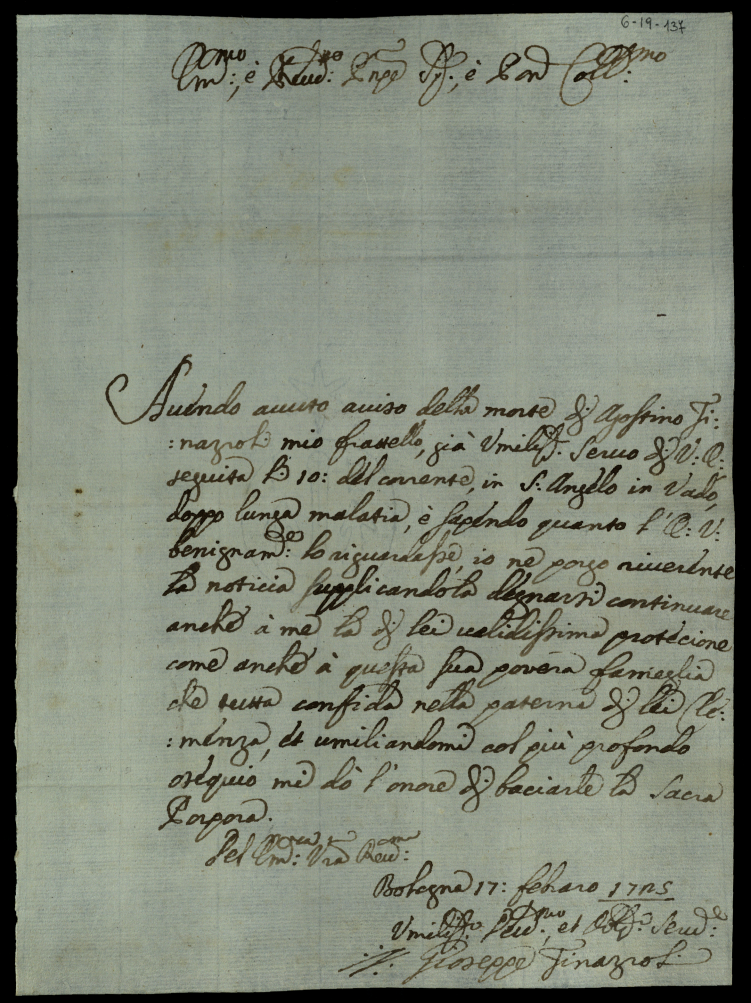 6-19-137
Em:mo, è Reud:mo Prnpe Sig:r, è Pron Coll:mo
Auendo auuto auiso della morte di Agostino Fi:
:nazioli mio fratello, già Vmiliss: Seruo di V: E:
seguita li 10: del corrente, in S: Angelo in Vado,
doppo lunga malatia, è sapendo quanto l'E: V:
benignam:te lo riguardasse, io ne porgo riuerente
la noticia supplicandola degnarsi continuare
anche à me la di lei ualidissima protecione
come anche à questa sua pouera fameglia
che tutta confida nella paterna di lei Cle:
:menza, et umiliandomi col più profondo
osequio mi dò l'onore di baciarle la Sacra
Porpora.
Del Em:za Vra Reud:ma
Bologna 17: febraro
Vmiliss:mo Deu:mo, et Obb:o Seru:e
Giuseppe Finazioli